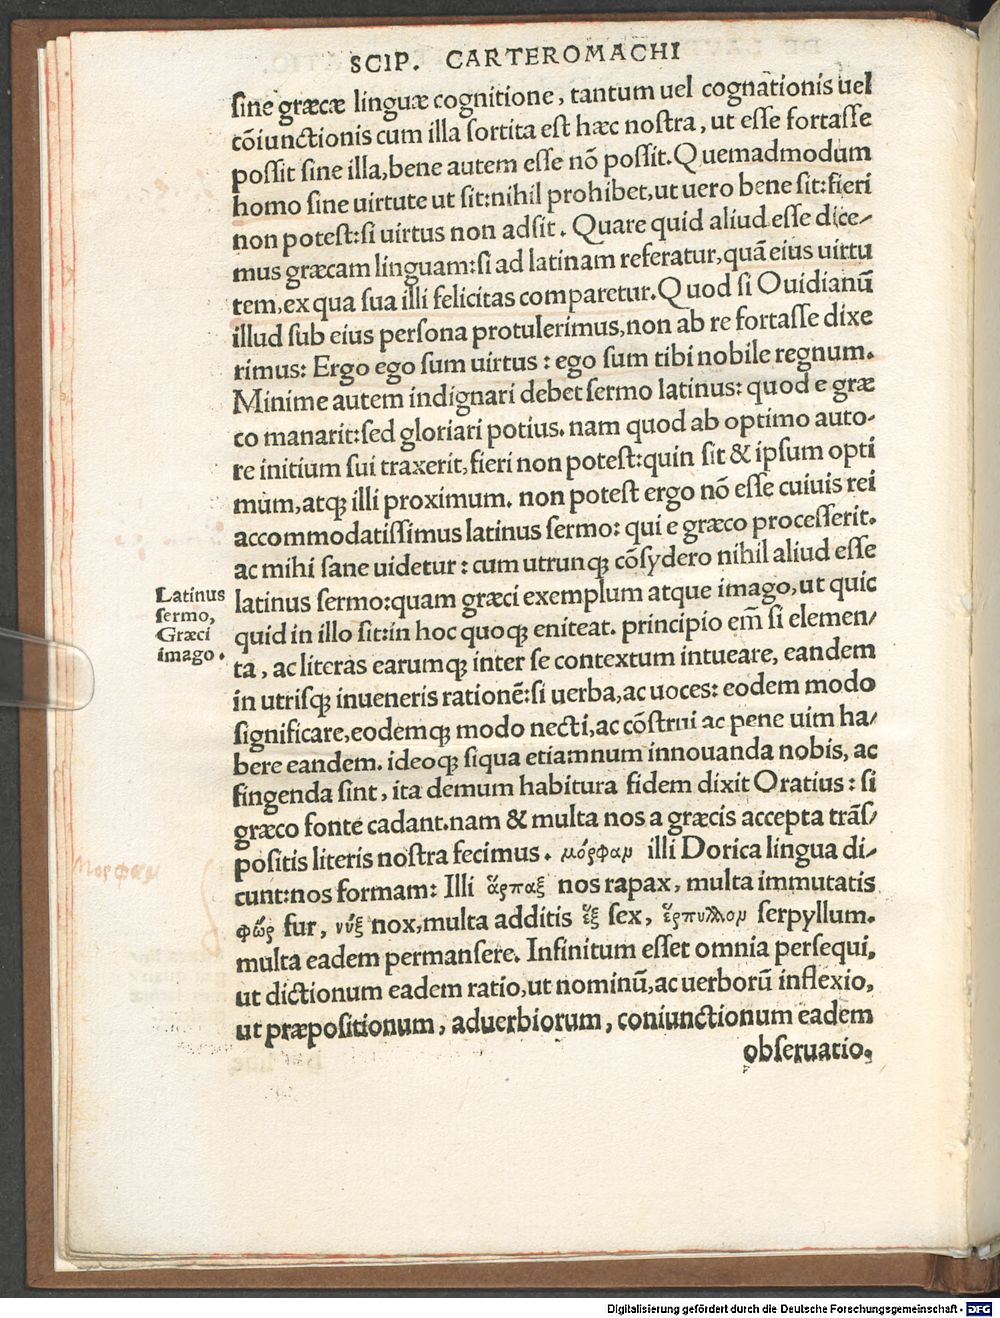 SCIP. CARTEROMACHI
sine græcæ linguæ cognitione, tantum uel cognationis uel
cōiunctionis cum illa sortita est hæc nostra, ut esse fortasse
possit sine illa, bene autem esse nō possit. Quemadmodum
homo sine uirtute ut sit: nihil prohibet, ut uero bene sit: fieri
non potest: si uirtus non adsit. Quare quid aliud esse dice/
mus græcam linguam: si ad latinam referatur, quā eius uirtu
tem, ex qua sua illi felicitas comparetur. Quod si Ouidianū
illud sub eius persona protulerimus, non ab re fortasse dixe
rimus: Ergo ego sum uirtus: ego sum tibi nobile regnum.
Minime autem indignari debet sermo latinus: quod e græ
co manarit: sed gloriari potius. nam quod ab optimo auto/
re initium sui traxerit, fieri non potest: quin sit & ipsum opti
mum, atq; illi proximum. non potest ergo nō esse cuiuis rei
accommodatissimus latinus sermo: qui e græco processerit.
ac mihi sane uidetur: cum utrunq; cōsydero nihil aliud esse
latinus sermo: quam græci exemplum atque imago, ut quic
quid in illo sit: in hoc quoq; eniteat. principio em̄ si elemen/
ta, ac literas earumq; inter se contextum intueare, eandem
in utrisq; inueneris rationē: si uerba, ac uoces: eodem modo
significare, eodemq; modo necti, ac cōstrui ac pene uim ha/
bere eandem. ideoq; siqua etiamnum innouanda nobis, ac
fingenda sint, ita demum habitura fidem dixit Oratius: si
græco fonte cadant. nam & multa nos a græcis accepta trās/
positis literis nostra fecimus. μόρφαμ illi Dorica lingua di/
cunt: nos formam: Illi ἅρπαξ nos rapax, multa immutatis
φώρ fur, νύξ nox, multa additis ἕξ sex, ἕρπυλλομ serpyllum.
multa eadem permansere. Infinitum esset omnia persequi,
ut dictionum eadem ratio, ut nominū, ac uerborū inflexio,
ut præpositionum, aduerbiorum, coniunctionum eadem
obseruatio,
Latinus
sermo,
Græci
imago.
μορφαμ
Digitalisierung gefördert durch die Deutsche Forschungsgemeinschaft - DFG